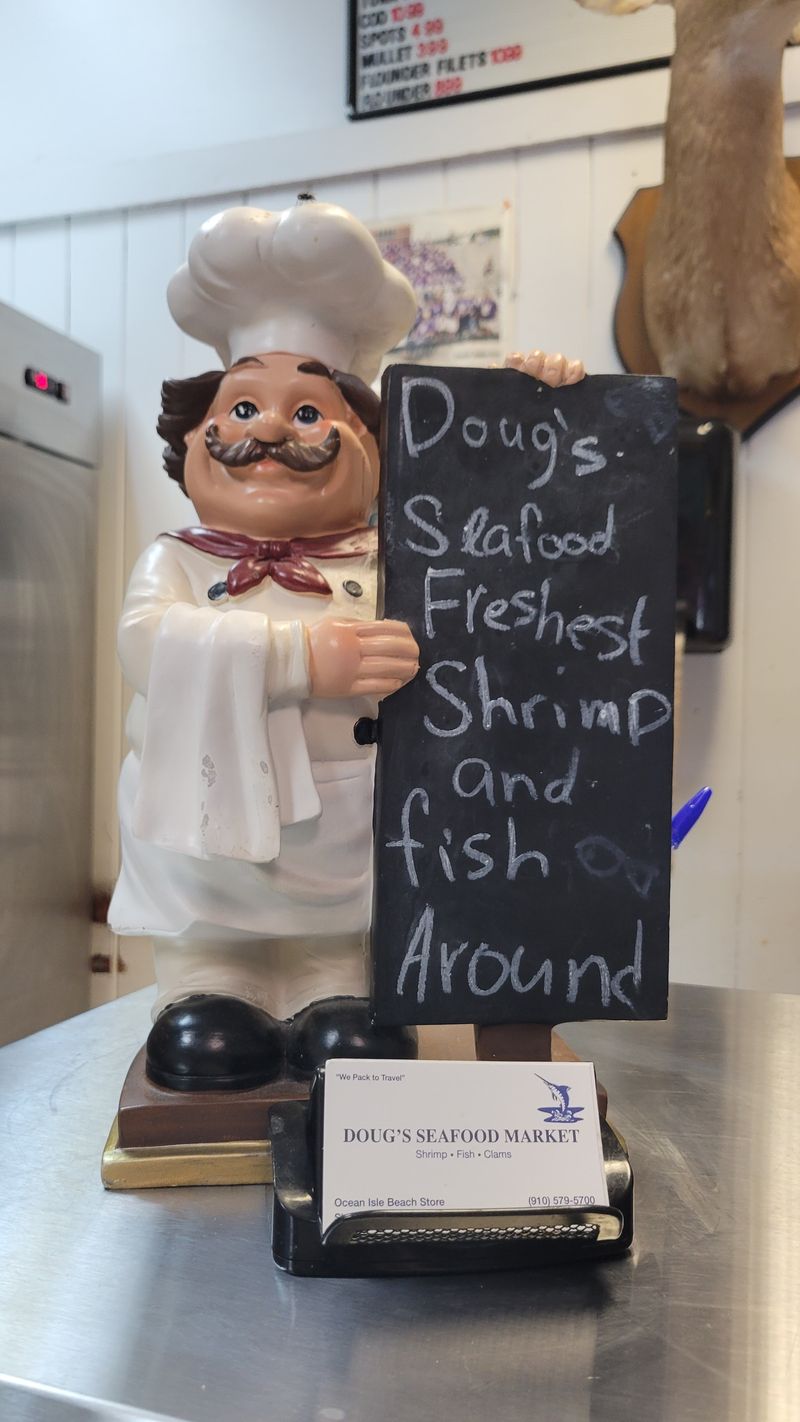 COD 10.99
SPOTS 4.99
MULLET 3.99
FLOUNDER FILETS 10.99
FLOUNDER 8.99
Doug's
Seafood
Freshest
Shrimp
and
fish
Around
"We Pack to Travel"
DOUG'S SEAFOOD MARKET
Shrimp • Fish • Clams
Ocean Isle Beach Store
(910) 579-5700